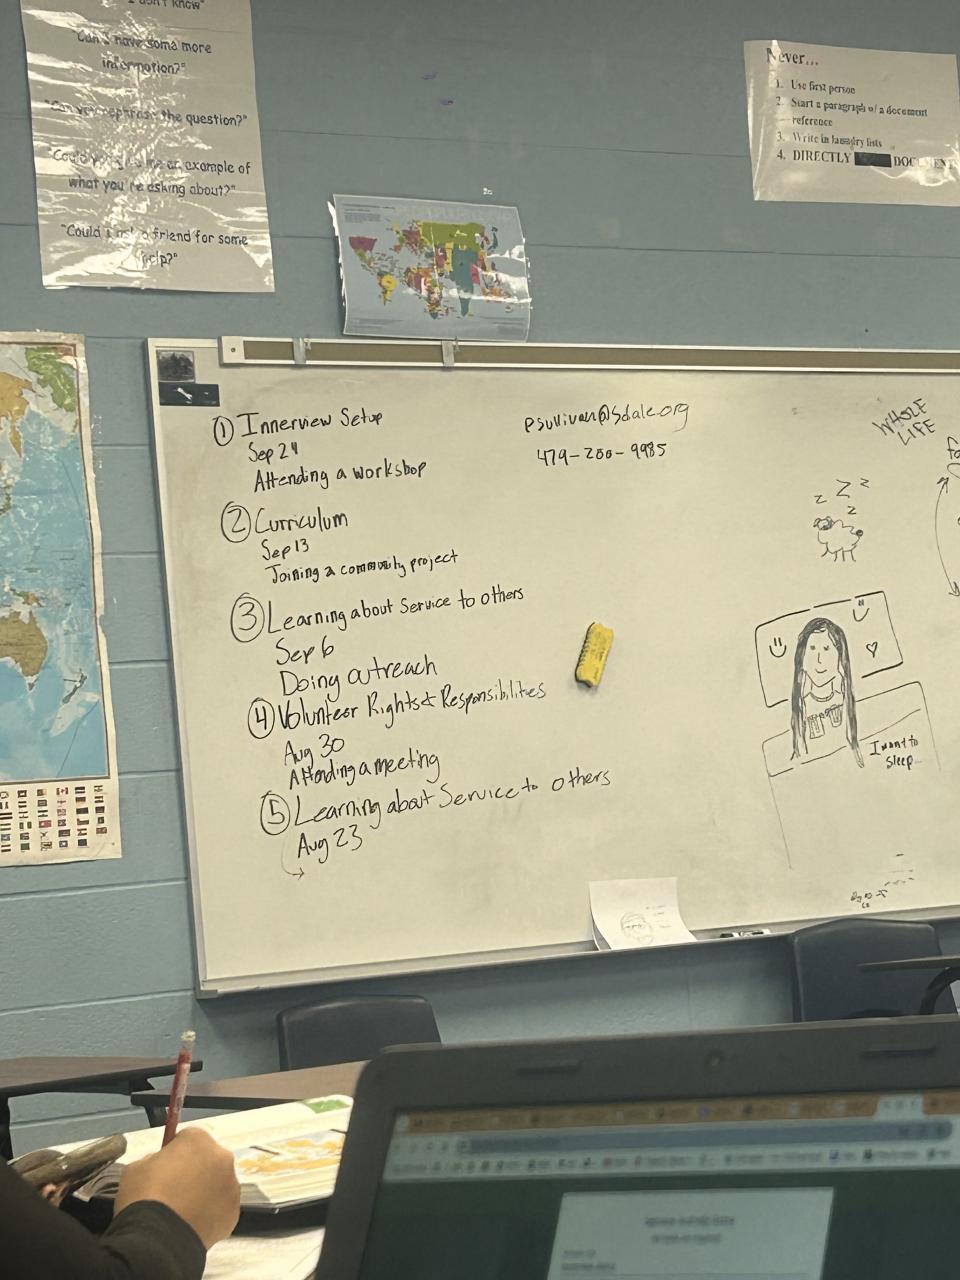 know"
"Can I have some more
information?"
"Can you rephrase the question?"
"Could you give me an example of
what you're asking about?"
"Could I ask a friend for some
help?"
Never...
1. Use first person
2. Start a paragraph w/ a document
reference
3. Write in laundry lists
4. DIRECTLY DOCUMENT
① Innerview Setup
Sep 24
Attending a workshop
② Curriculum
Sep 13
Joining a community project
③ Learning about Service to others
Sep 6
Doing outreach
④ Volunteer Rights & Responsibilities
Aug 30
Attending a meeting
⑤ Learning about Service to others
Aug 23
psullivan@sdale.org
479-200-9985
WHOLE
LIFE
z Z z
z
I want to
sleep